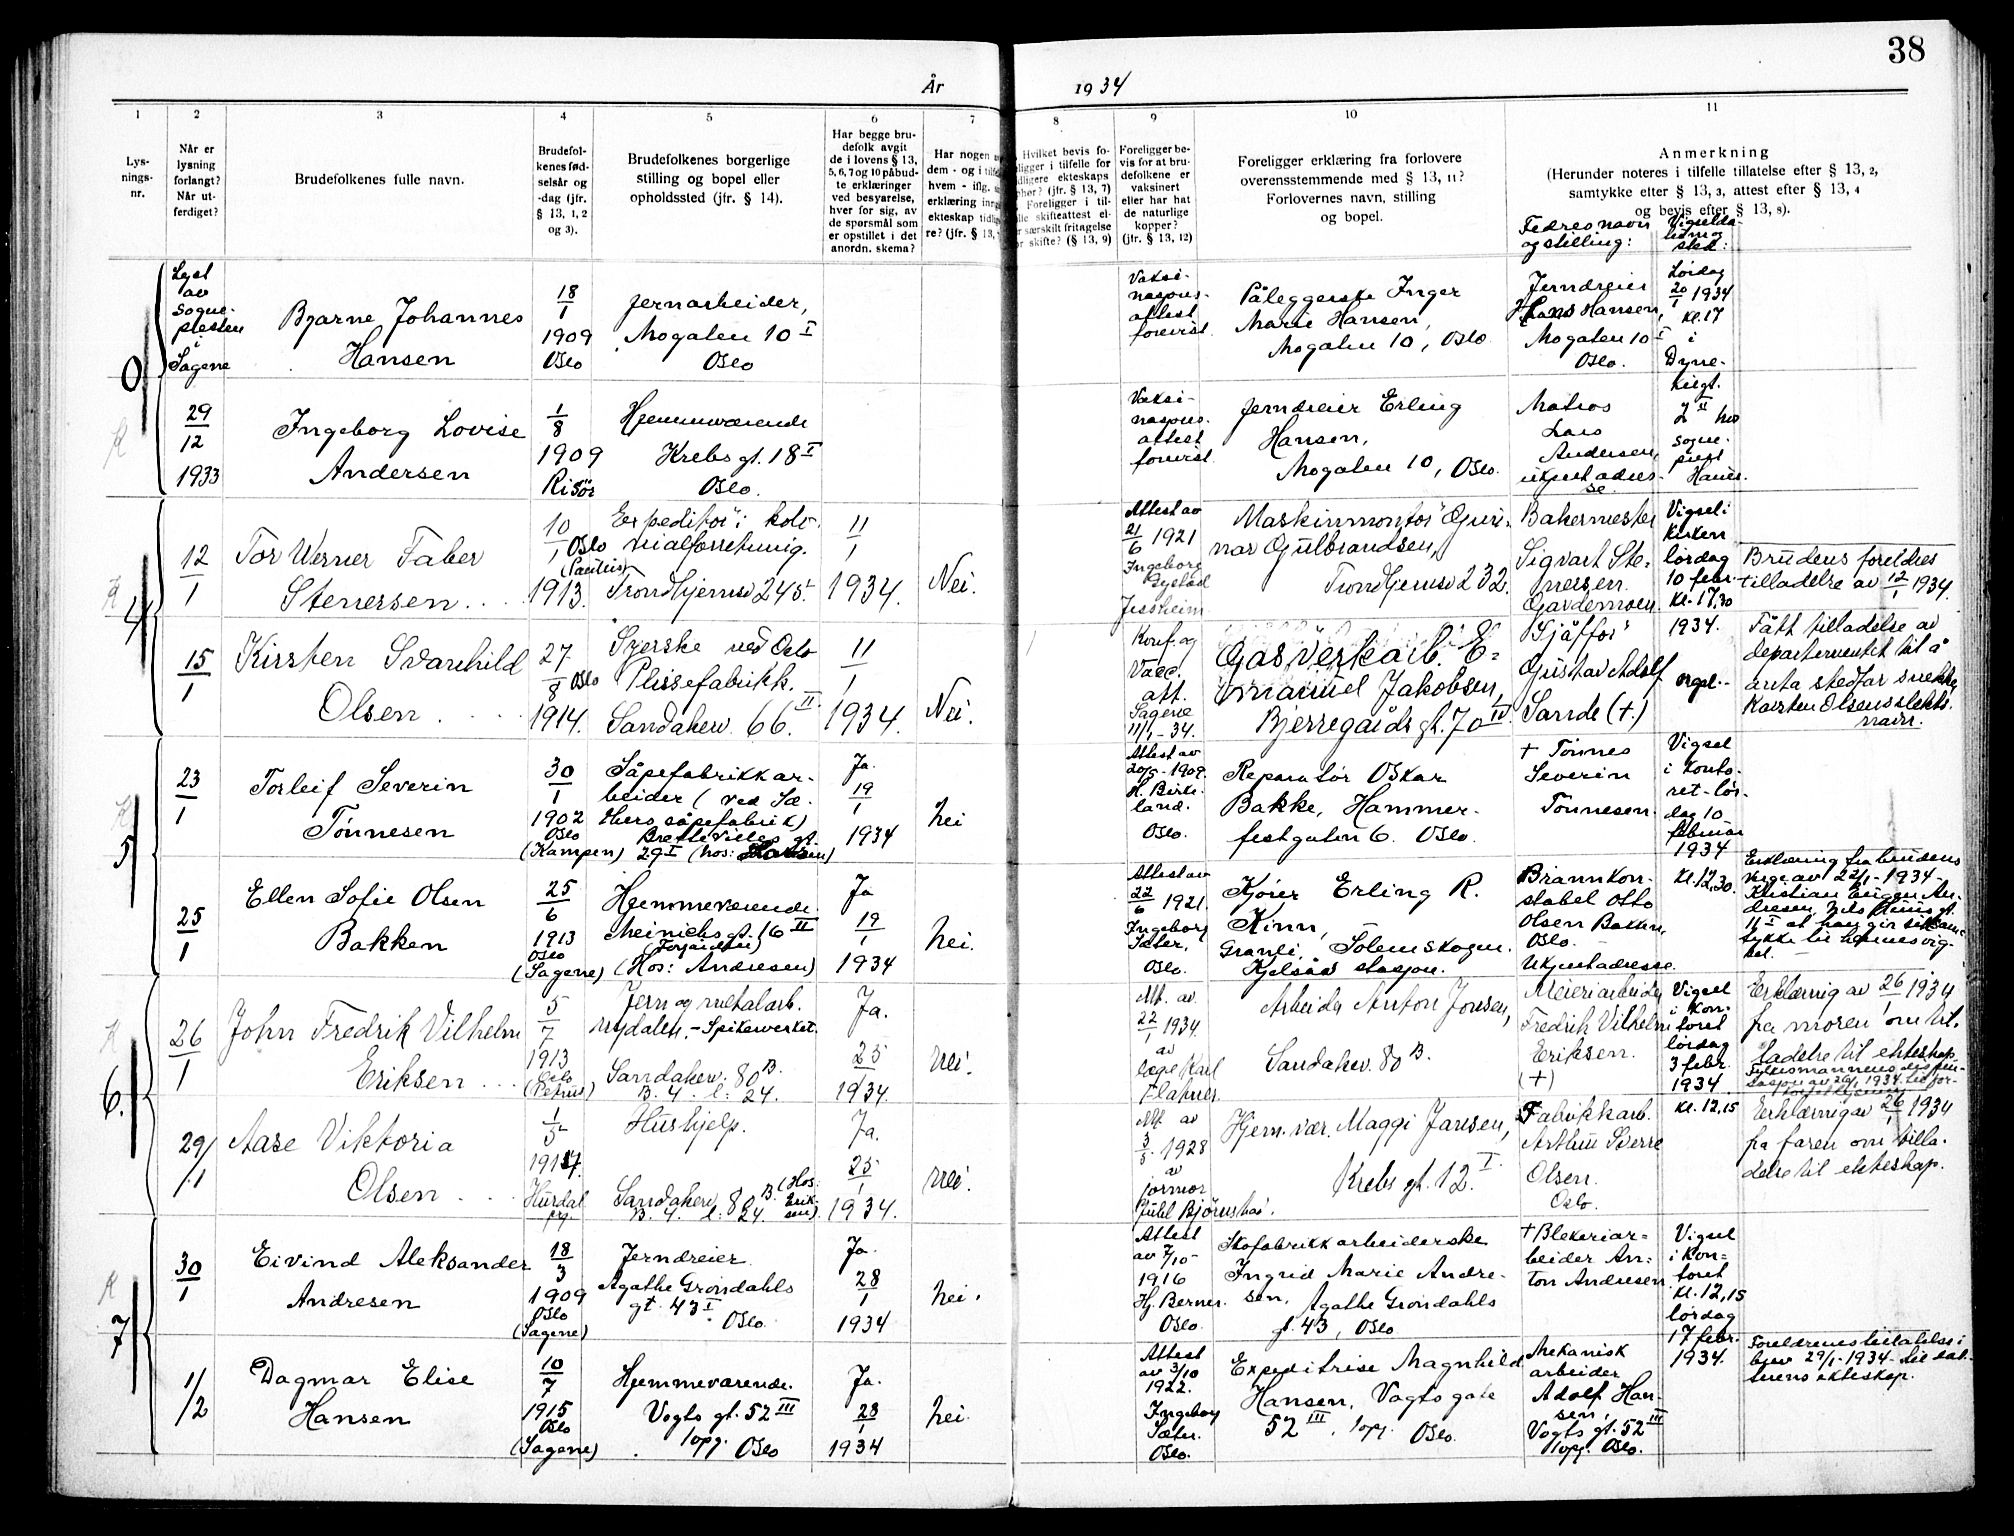 38
År 1934
1 2 3 4 5 6 7 8 9 10 11
Lys-
nings-
nr.
Når er
lysning
forlangt?
Når ut-
ferdiget?
Brudefolkenes fulle navn.
Brudefol-
kenes fød-
selsår og
-dag (jfr.
§ 13, 1, 2
og 3).
Brudefolkenes borgerlige
stilling og bopel eller
opholdssted (jfr. § 14).
Har begge bru-
defolk avgit
de i lovens § 13,
5, 6, 7 og 10 påbud-
te erklæringer
ved besvarelse,
hver for sig, av
de spørsmål som
er opstillet i det
anordn. skema?
Har nogen
dem - og i
hvem - iflg.
erklæring
ekteskap
re? (jfr. § 13,
Hvilket bevis fo-
i tilfelle for
ekteskaps
(jfr. § 13, 7)
Foreligger i til-
skifteattest el-
særskilt fritagelse
skifte? (§ 13, 9)
Foreligger be-
vis for at bru-
defolkene er
vaksinert
eller har hat
de naturlige
kopper?
(jfr. § 13, 12)
Foreligger erklæring fra forlovere
overensstemmende med § 13, 11?
Forlovernes navn, stilling
og bopel.
Anmerkning
(Herunder noteres i tilfelle tillatelse efter § 13, 2,
samtykke efter § 13, 3, attest efter § 13, 4
og bevis efter § 13, 8).
Fedres navn
og stilling:
Vigselda-
tum og
sted:
0
Lyst
av
sogne-
presten
i
Sagene
Bjarne Johannes
Hansen
18
1
1909
Oslo
Jernarbeider,
Mogaten 10 I
Oslo
Vaksi-
nasjons-
attest
forevist.
Påleggerske Inger
Marie Hansen,
Mogaten 10, Oslo
Jerndreier
Hans Hansen,
Mogaten 10 I
Oslo.
Lørdag
20/1 1934
kl. 17
i
29
12
1933
Ingeborg Lovise
Andersen
1
8
1909
Risør
Hjemmeværende
Krebs gt. 18 I
Oslo.
Vaksi-
nasjons-
attest
forevist.
Jerndreier Erling
Hansen,
Mogaten 10, Oslo.
Matros
Lars
Andersen,
ukjent adres-
se
sogne-
prest
4
12
1
Tor Werner Faber
Stenersen
10
1 Oslo
(Paulus)
1913.
Expeditør i kolo-
nialforretning.
Trondhjemsv 245.
11
1
1934.
Nei.
Attest av
21/6 1921
Ingeborg
Jessheim
Maskinmontør Gun-
nar Gulbrandsen,
Trondhjemsv 232.
Bakermester
Sigvart Ste-
nersen.
Gardemoen.
Vigsel i
kirken
lørdag
10 febr.
kl. 17,30
1934.
orgel.
Brudens foreldres
tilladelse av 12/1 1934.
15
1
Kirsten Svanhild
Olsen
27
8 Oslo
1914.
Syerske ved Oslo
Plissefabrikk.
Sandakerv. 66. II
11
1
1934.
Nei.
Konf. og
Vacc.
att.
Sagene
11/1 - 34.
Gasverkarb. E-
manuel Jakobsen,
Bjerregaards gt. 70 IV.
Sjåffør
Gustav Adolf
Sande (+)
Fått tilladelse av
departementet til å
anta stedfar snekker
Karsten Olsens slekts-
navn.
5
23
1
Torleif Severin
Tønnesen
30
1
1902
Oslo
(Kampen)
Såpefabrikkar-
beider (ved Sæ-
thers såpefabrik)
Brettevilles gt.
29 I
Ja.
19
1
1934
Nei
Attest av
20/5 - 1909.
H. Birke-
land.
Oslo.
Reparatør Oskar
Bakke, Hammer-
festgaten 6. Oslo.
+ Tønnes
Severin
Tønnesen.
Vigsel
i konto-
ret - lør-
dag 10
februar
1934
kl. 12,30.
25
1
Ellen Sofie Olsen
Bakken
25
6
1913
Oslo
(Sagene)
Hjemmeværende.
Meinichs gt. 16 III
(Hos: Andresen)
Ja
19
1
1934
Nei.
Attest av
22/6 1921.
Ingeborg
Sæter,
Oslo.
Kjører Erling R.
Kinn,
Granli, Solemskogen.
Kjelsås stasjon.
Brannkon-
stabel Otto
Olsen Bakken,
Oslo.
Ukjent adresse.
Erklæring fra brudens
verge av 22/1 - 1934 -
Kristian An-
dresen,
11 I at han gir sitt sam-
tykke til hennes vig-
sel.
6.
26
1
John Fredrik Vilhelm
Eriksen
5
7
1913
Oslo
(Petrus)
Jern og metalarb.
Nydalen. - Spikerverket.
Sandakerv. 80 B.
B. 4. l: 24.
Ja.
25
1
1934.
Nei.
Att. av
22/1 1934.
av
læge Karl
Arbeider Anton Jonsen,
Sandakerv. 80 B.
Meieriarbeider
Fredrik Vilhelm
Eriksen.
(+)
Vigsel
i kon-
toret
lørdag
3 febr.
1934
kl. 12,15
Erklæring av 26/1 1934
fra moren om til-
ladelse til ekteskap.
Fylkesmannens dispen-
sasjon av 1934
29/1
Aase Viktoria
Olsen
1
5
1917.
Hurdal
prg.
Hushjelp.
Sandakerv. 80 B. (Hos:
Erik-
sen)
B. 4. l: 24.
Ja.
25
1
1934.
Nei.
Att. av
3/5 1928
av
jormor
Juhl Bjørnstad.
Hjem. vær. Maggi Jansen,
Krebs gt. 12. I
Fabrikkarb.
Arthur Sverre
Olsen.
Oslo.
Erklæring av 26/1 1934
fra faren om tilla-
delse til ekteskap.
7
30
1
Eivind Aleksander
Andresen
18
3
1909
Oslo
(Sagene)
Jerndreier
Agathe Grøndahls
gt. 43 I. Oslo
Ja.
28
1
1934
Nei.
Attest
av 7/10 -
1916
Hj. Berner.
Oslo.
Skofabrikkarbeiderske
Ingrid Marie Andre-
sen, Agathe Grøndahls
gt. 43, Oslo
+ Blekeriar-
beider An-
ton Andresen
Vigsel
i kon-
toret
kl. 12,15
lørdag
17 febr.
1934.
1/2
Dagmar Elise
Hansen
10
7
1915
Oslo
(Sagene)
Hjemmeværende.
Vogts gt. 52 III
1 opg. Oslo
Ja.
28
1
1934
Nei.
Attest
av 3/10
1922.
Ingeborg
Sæter.
Oslo.
Expeditrise Magnhild
Hansen, Vogts gate
52 III, 1 opg. Oslo.
Mekanisk
arbeider
Adolf Han-
sen,
Vogts gt. 52 III
1 opg. Oslo.
Foreldrenes tillatelse i
brev 29/1 - 1934 - til dat-
terens ekteskap.